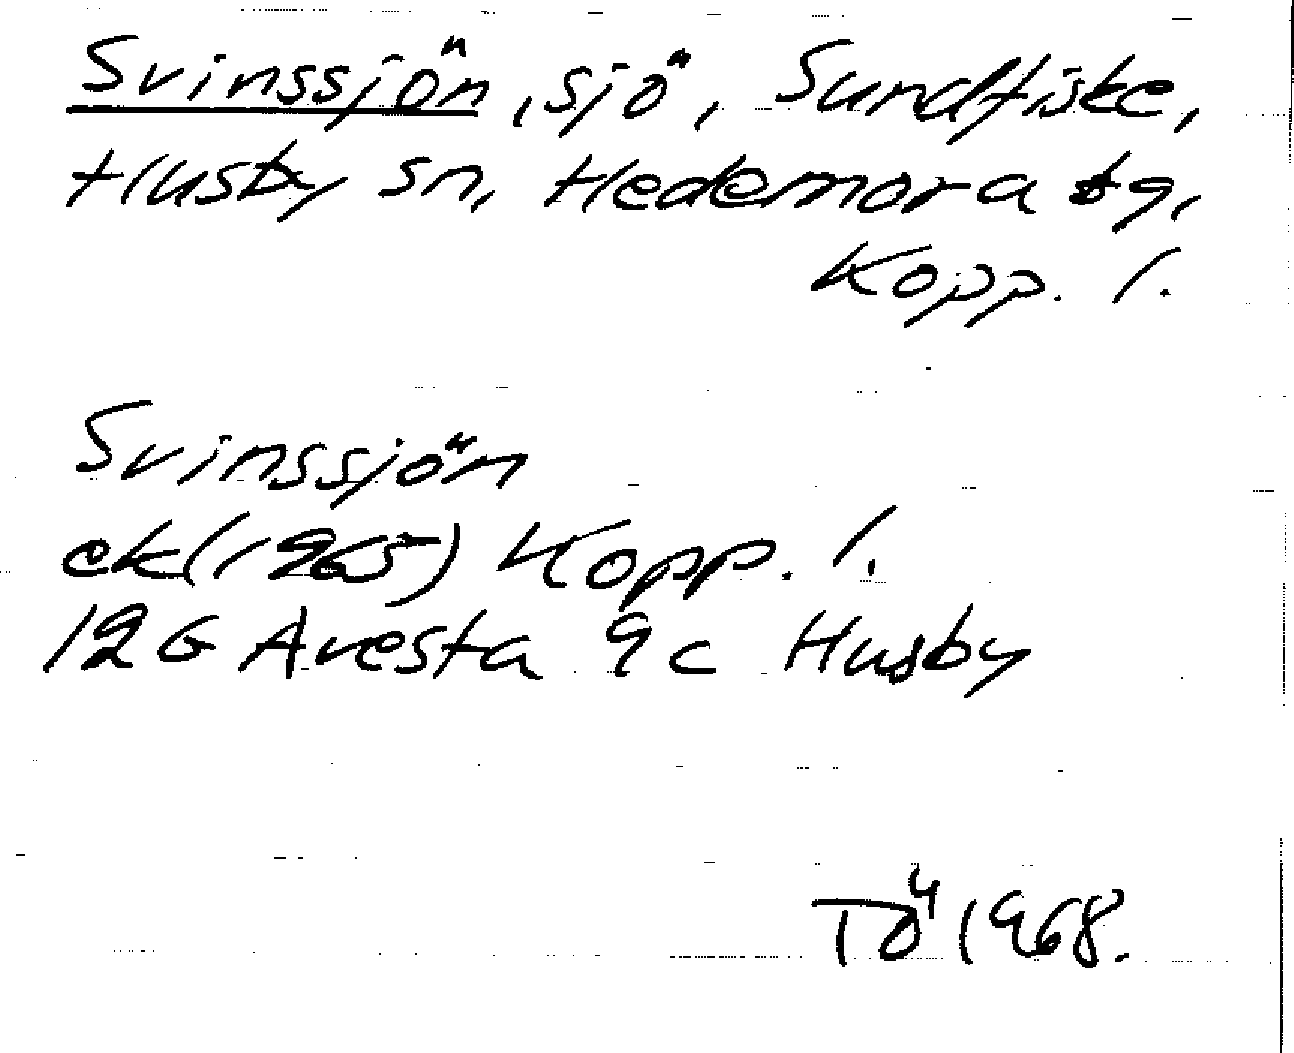 Svinssjön, sjö, Sundfiske,
Husby sn, Hedemora tg,
Kopp. l.
Svinssjön
ek(1965) Kopp. l.
12G Avesta 9c Husby
TÖ 1968.